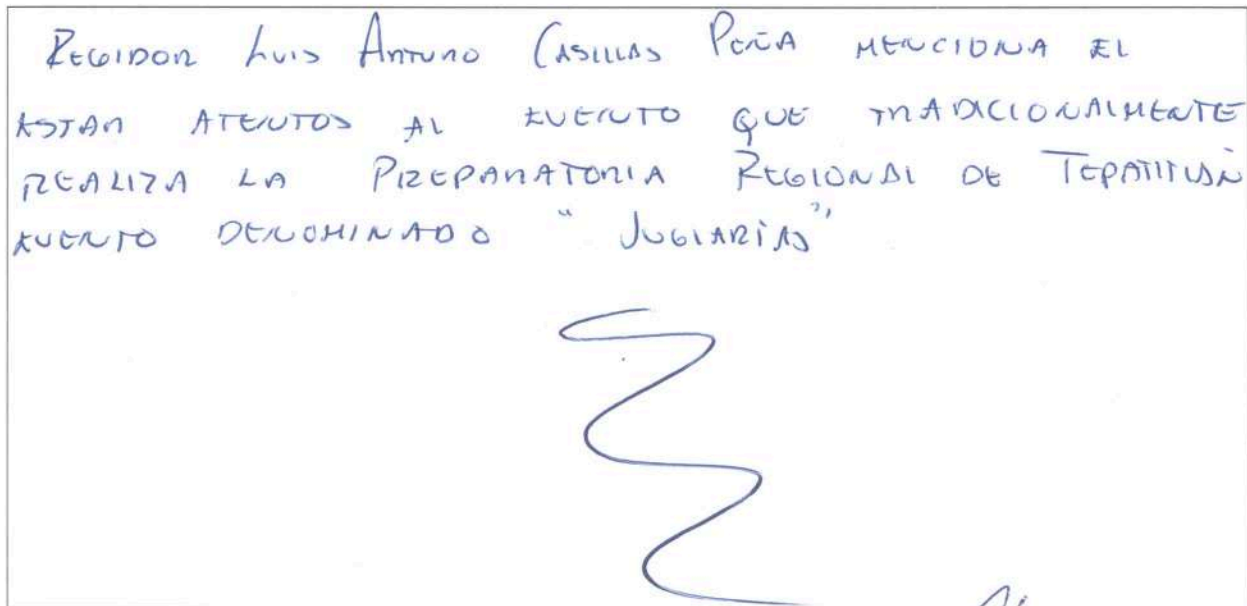 REGIDOR LUIS ARTURO CASILLAS PEÑA MENCIONA EL
ESTAR ATENTOS AL EVENTO QUE TRADICIONALMENTE
REALIZA LA PREPARATORIA REGIONAL DE TEPATITLÁN
EVENTO DENOMINADO "JUGLARÍAS"